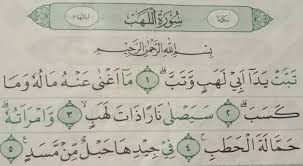 سُورَةُ اللَّهَبِ
بِسْمِ اللَّهِ الرَّحْمَٰنِ الرَّحِيمِ
تَبَّتْ يَدَا أَبِي لَهَبٍ وَتَبَّ ١ مَا أَغْنَىٰ عَنْهُ مَالُهُ وَمَا
كَسَبَ ٢ سَيَصْلَىٰ نَارًا ذَاتَ لَهَبٍ ٣ وَامْرَأَتُهُ
حَمَّالَةَ الْحَطَبِ ٤ فِي جِيدِهَا حَبْلٌ مِّن مَّسَدٍ ٥